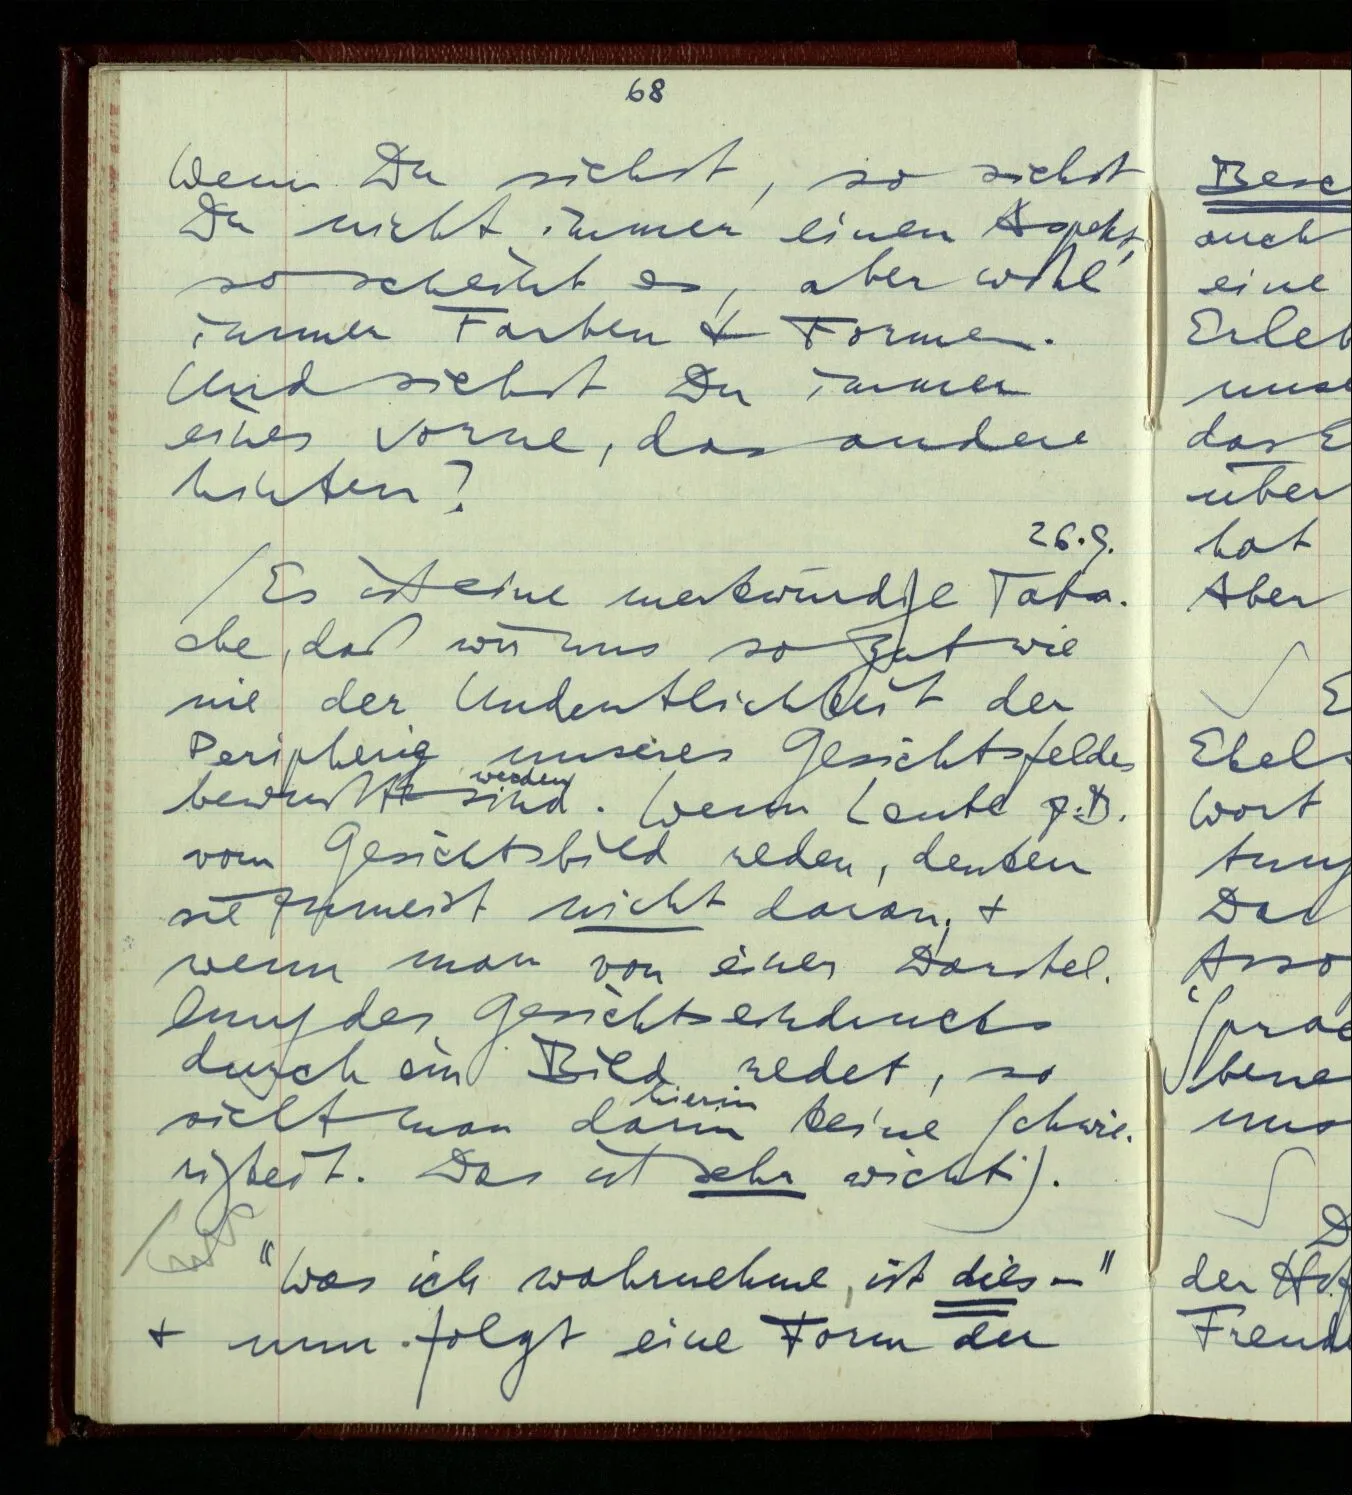 68
Wenn Du siehst, so siehst
Du nicht immer einen Aspekt,
so scheint es, aber wohl
immer Farben + Formen.
Und siehst Du immer
eines vorne, das andere
hinten?
26.9.
/ Es ist eine merkwürdige Tatsa-
che, daß wir uns so gut wie
nie der Undeutlichkeit der
Peripherie unseres Gesichtsfeldes
werden
bewußt sind. Wenn Leute z.B.
vom Gesichtsbild reden, denken
sie zumeist nicht daran, +
wenn man von einer Darstel-
lung des Gesichtseindrucks
durch ein Bild redet, so
hierin
sieht man darin keine Schwie-
rigkeit. Das ist sehr wichtig.
"Was ich wahrnehme, ist dies –"
+ nun folgt eine Form der
Besc
auch
eine
Erleb
uns
das E
über
hat
Aber
E
Ebels
Wort
tung
Das
Asso
Sprac
bene
uns
D
der
Freud